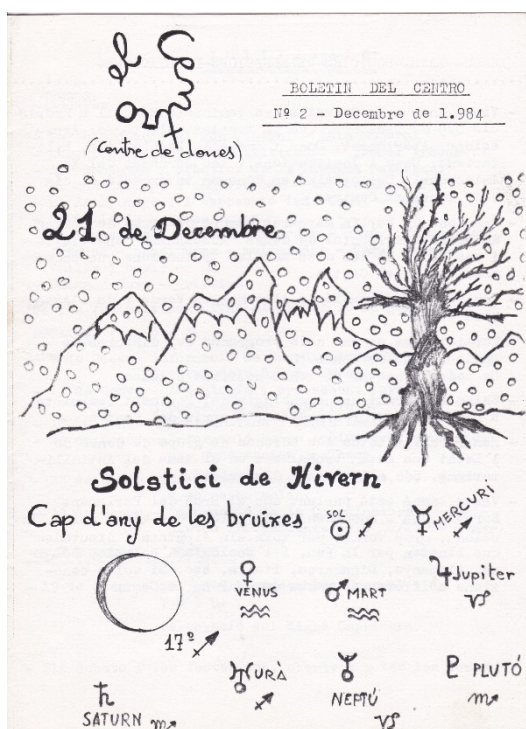 el
(Centre de dones)
BOLETIN DEL CENTRO
Nº 2 - Decembre de 1.984
21 de Decembre
Solstici de Hivern
Cap d'any de les bruixes
SOL
MERCURI
VENUS
MART
Jupiter
17º
URÀ
NEPTÚ
PLUTÓ
SATURN